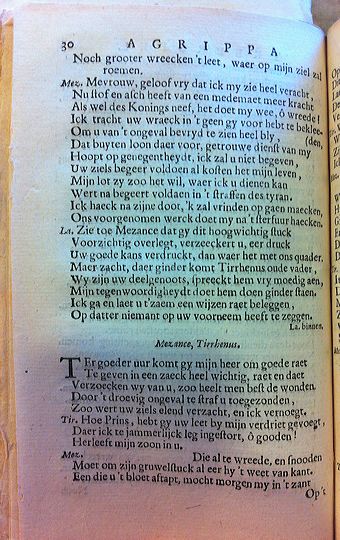 30 AGRIPPA
Noch grooter wreecken 't leet, waer op mijn ziel zal
roemen.
Mez. Mevrouw, geloof vry dat ick my zie heel veracht,
Nu stof en asch heeft van een medemaet meer kracht
Als wel des Konings neef, het doet my wee, ô wreede!
Ick tracht uw wraeck in 't geen gy voor hebt te beklee-
Om u van 't ongeval bevryd te zien heel bly, (den,
Dat buyten loon daer voor, getrouwe dienst van my
Hoopt op genegentheydt, ick zal u niet begeven,
Uw ziels begeer voldoen al kosten het mijn leven,
Mijn lot zy zoo het wil, waer ick u dienen kan
Wert na begeert voldaen in 't straffen des tyran.
Ick haeck na zijne doot, 'k zal vrinden op gaen maecken,
Ons voorgenomen werck doet my na 't sterfuur haecken.
La. Zie toe Mezance dat gy dit hoogwichtig stuck
Voorzichtig overlegt, verzeeckert u, eer druck
Uw goede kans verdruckt, dan waer het met ons quader.
Maer zacht, daer ginder komt Tirrhenus oude vader,
Wy zijn uw deelgenoots, spreeckt hem vry moedig aen,
Mijn tegenwoordigheydt doet hem doen ginder staen.
Ick ga en laer u t'zaem een wijzen raet beleggen,
Op datter niemant op uw voorneem heeft te zeggen.
La. binnen.
Mezance, Tirrhenus.
TEr goeder uur komt gy mijn heer om goede raet
Te geven in een zaeck heel wichtig, raet en daet
Verzoecken wy van u, zoo heelt men best de wonden.
Door 't droevig ongeval te straf u toegezonden,
Zoo wert uw ziels elend verzacht, en ick vernoegt.
Tir. Hoe Prins, hebt gy uw leet by mijn verdriet gevoegt,
Daer ick te jammerlijck leg ingestort, ô gooden!
Herleeft mijn zoon in u.
Mez. Die al te wreede, en snooden
Moet om zijn gruwelstuck al eer hy 't weet van kant.
Een die u 't bloet aftapt, mocht morgen my in 't zant
Op't